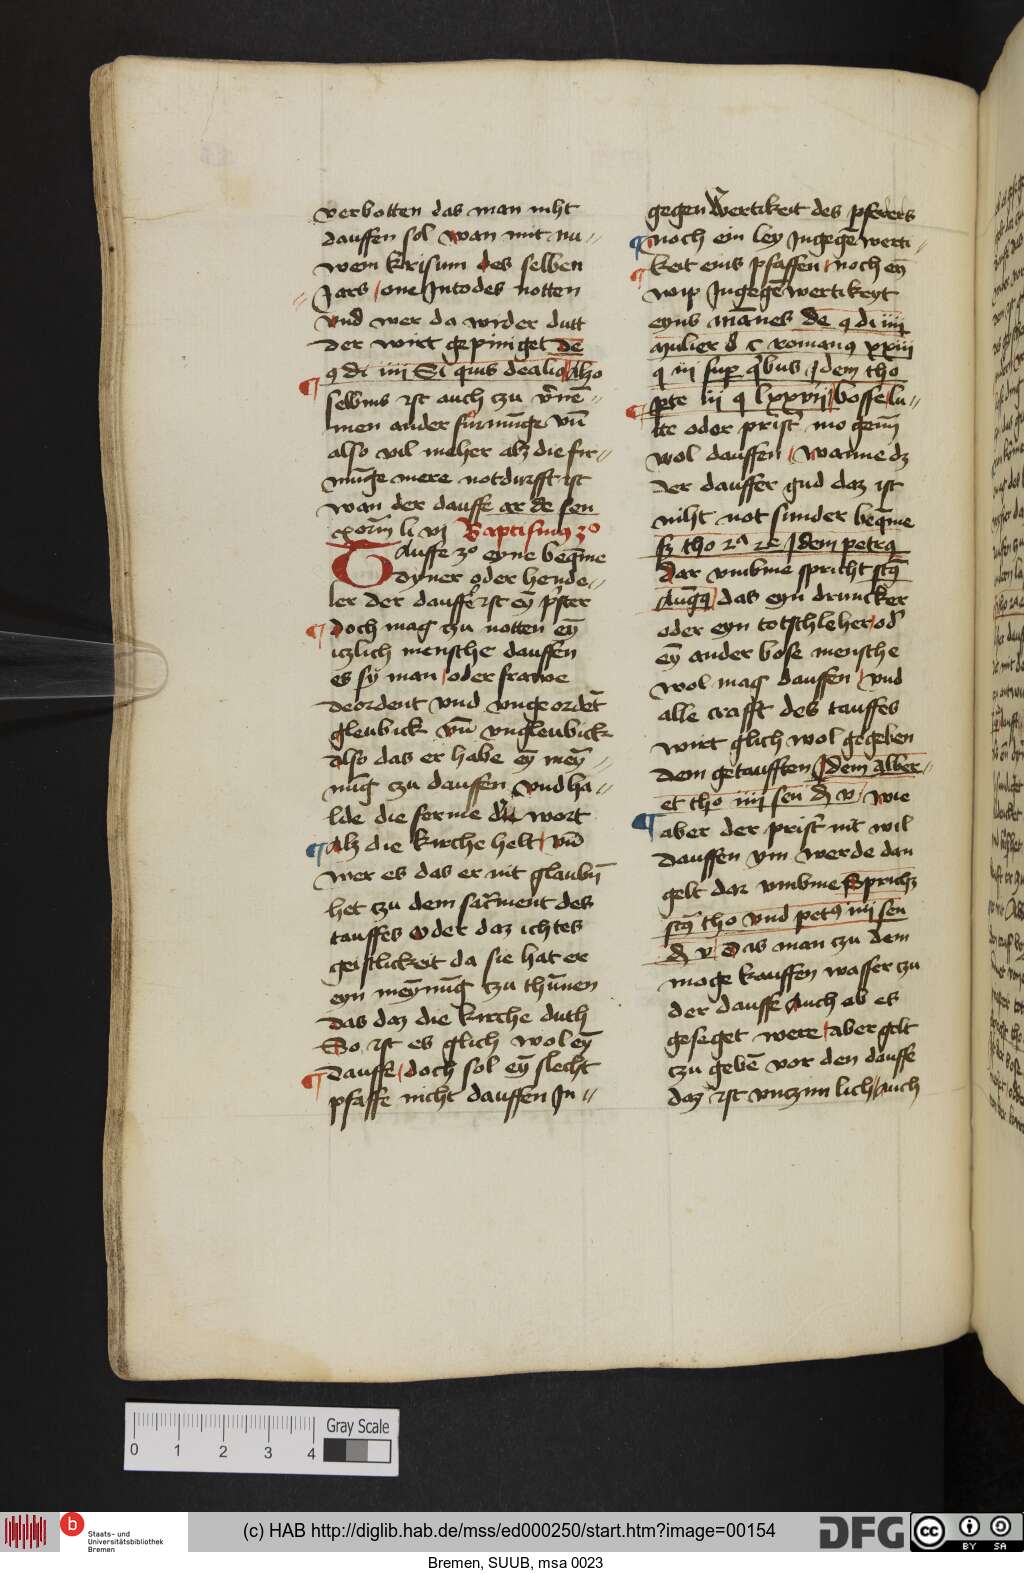 verbotten das man niht
dauffen sol wan mit nu//
wem krisum des selben
Jars one Jntodes notten
vnd wer da wider dutt
der wirt gepiniget de
9 di iiii Si quis de aliq Also
selbins ist auch czu v̄nē//
men ander fúrmu̅ge vn̄
also vil meher alz die fir//
mu̅ge mere notdurfft ist
wan der dauffe ar de sen
xorm̄ li vj Baptismus 3o
Tauffe 3o eyne beqe̅me
dyner oder hende//
ler der dauffe ist ey̅ prister
doch mag czu notten ey̅
iczlich mensche dauffen
es sy man oder frawe
deordent vnd vngeordet̅
gleubick vn̄ vngleubick
also das er habe ey̅ mey̅//
nu̅g czu dauffen vnd ha//
lde die forme der wort
Alz die kirche helt vn̄
wer es das er nit glaubn̄
het czu dem sacr̄ment des
tauffes oder daz ichtes
geistlickeit da sie hat er
eyn mey̅nu̅g czu thu̅nen
das daz die kirche duth
So ist es glich wol ey̅
dauffe doch sol ey̅ slecht
pfaffe nicht dauffen Jn//
gegen wertikeit des pferers
noch ein ley Jngege̅ werti//
keit eins pfaffen noch ey̅
wip Jngege̅ wertikeyt
eyns ma̅nes de 9 di iiii
mulier d c romanus xxiii
q iii sup q̄bus Jdem tho
p̱te iii q lxxvij bosse lu̅//
tte oder prist̄ mogenn̄
wol dauffen wanne dz
der dauffer gud daz ist
niht not sunder beqe̅me
sz tho Jdem petrus
dar vmbme spricht sct̄9
Aug9 das eyn druncker
oder eyn totschleher od̄
ey̅ ander bose mensche
wol mag dauffen vnd
alle crafft des tauffes
wirt glich wol gegeben
dem getaufften Jdem alber//
et tho iiii sen d v wie
aber der prist̄ nit wil
dauffen ym werde dan
gelt dar vmbme Sprichz
sct9 tho vnd pet9 iiii sen
d v das man czu dem
moge kauffen wasser czu
der dauffe Auch ab es
geseget were aber gelt
czu gebe̅ vor den dauffe
daz ist vnczimlich Auch
0 1 2 3 4
Gray Scale
b
Staats- und
Universitätsbibliothek
Bremen
(c) HAB http://diglib.hab.de/mss/ed000250/start.htm?image=00154
DFG
cc
BY SA
Bremen, SUUB, msa 0023